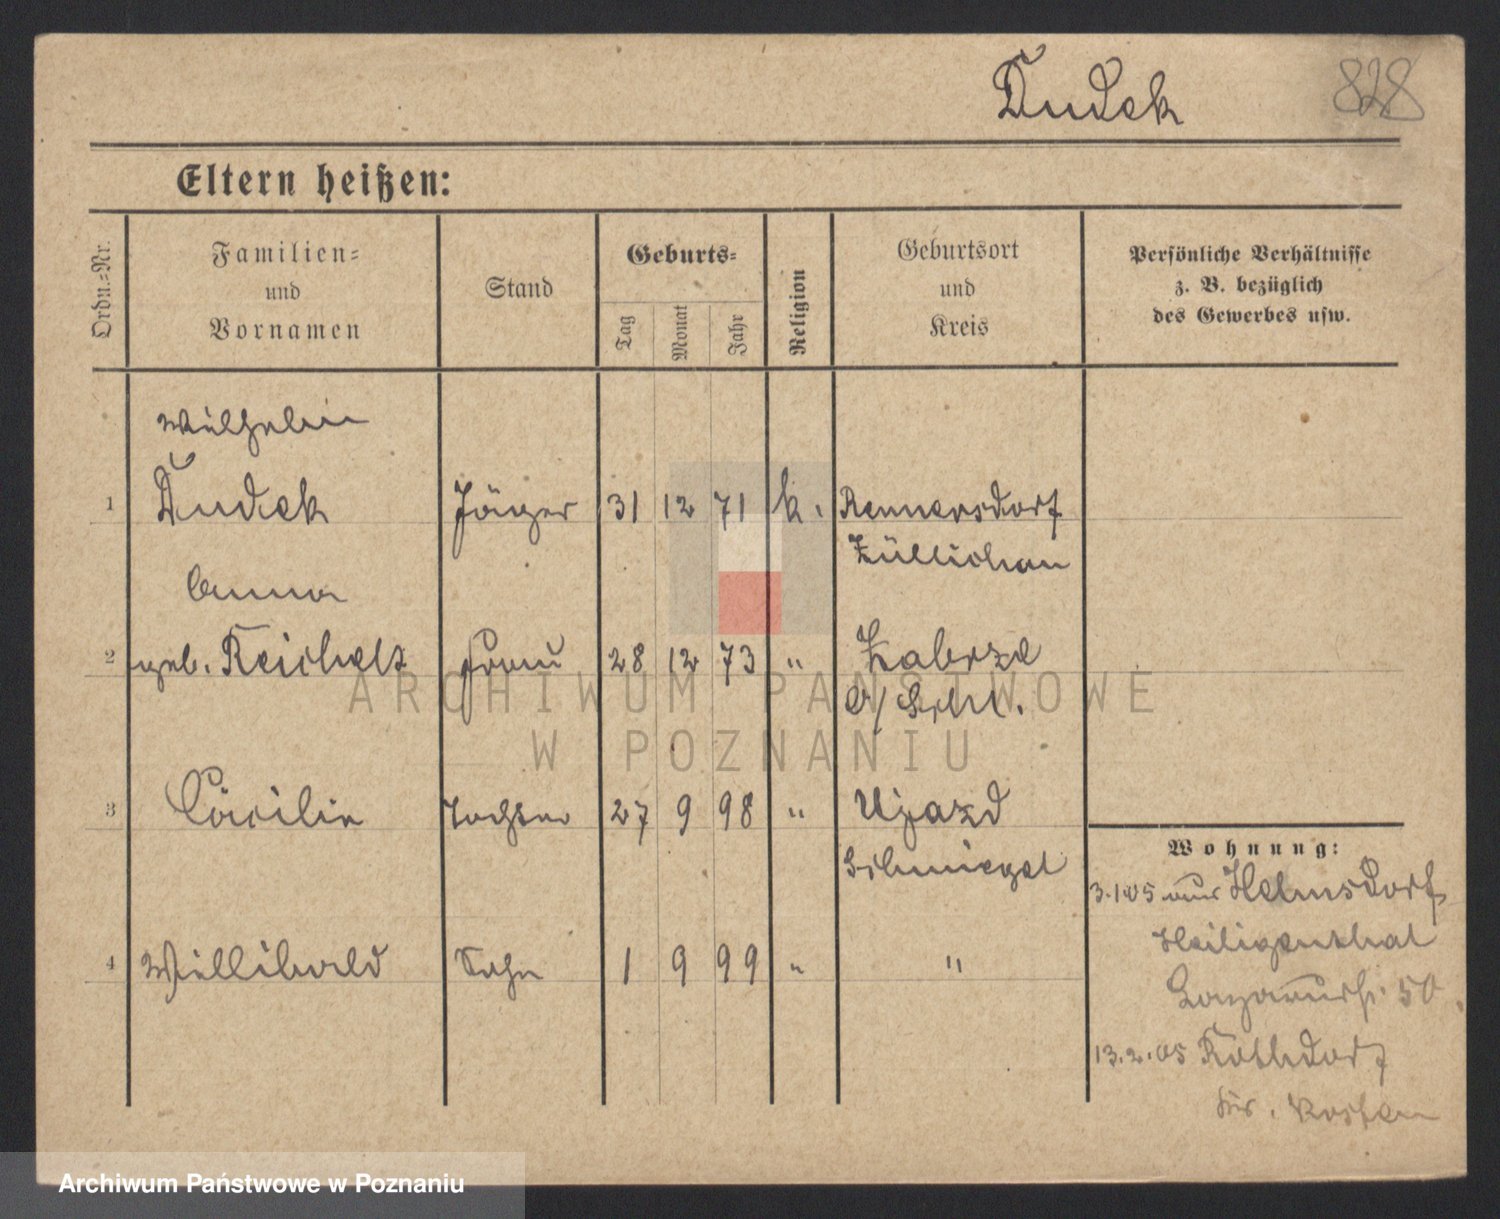 Dudek 828
Eltern heißen:
Ordn.-Nr.
Familien-
und
Vornamen
Stand
Geburts-
Tag
Monat
Jahr
Religion
Geburtsort
und
Kreis
Persönliche Verhältnisse
z. B. bezüglich
des Gewerbes usw.
Wilhelm
1 Dudek Jäger 31 12 71 k. Rennersdorf
Züllichau
Anna
2 geb. Reichelt Frau 28 12 73 " Zabrze
O/Schl.
3 Cäcilie Tochter 27 9 98 " Ujazd
Schmiegel
4 Willibald Sohn 1 9 99 " "
Wohnung:
3.1 05 aus Helmsdorf
Heiligenthal
50
13.2.05 Rothdorf
Kr. Kosten
ARCHIWUM PAŃSTWOWE
W POZNANIU
Archiwum Państwowe w Poznaniu